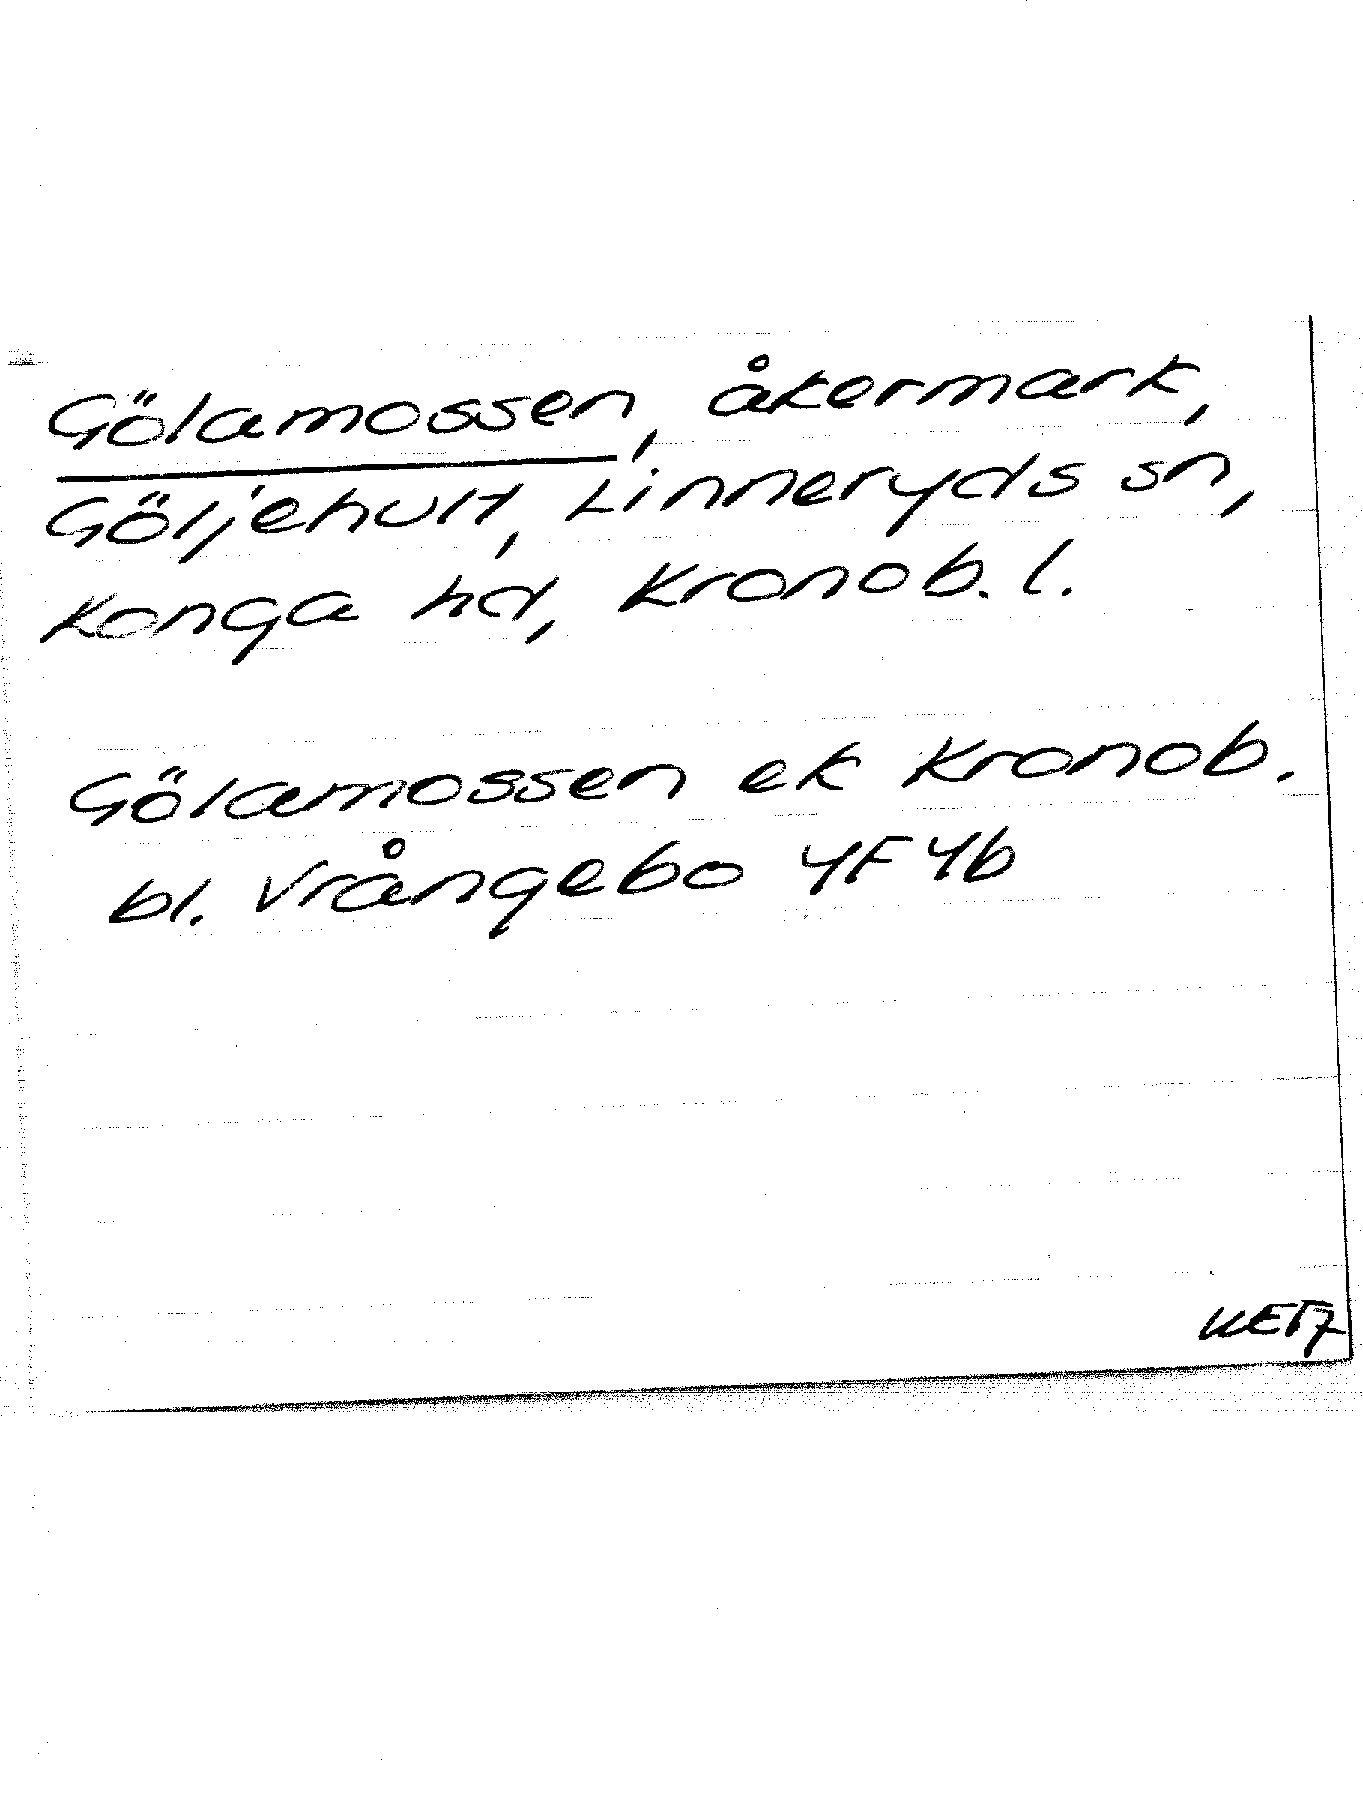 Gölamossen, åkermark,
Göljehult, Linneryds sn,
Konga hd, Kronob. l.
Gölamossen ek Kronob.
bl. Vrångebo 4F 4b